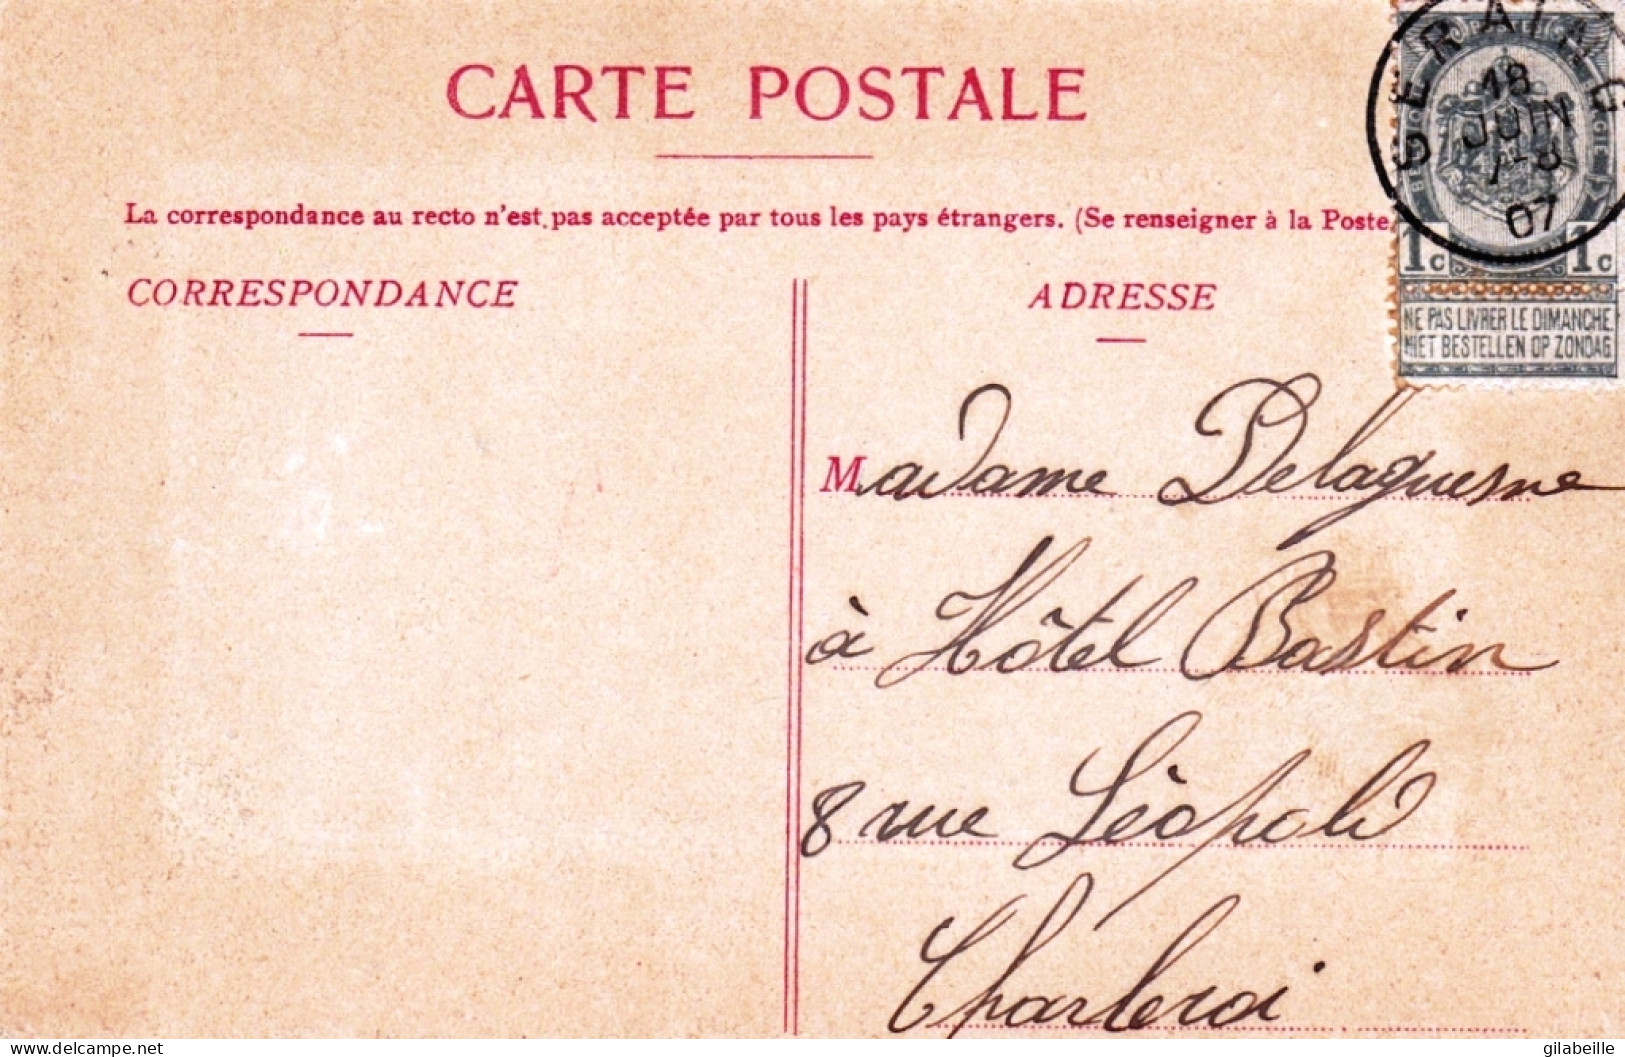 CARTE POSTALE
La correspondance au recto n'est pas acceptée par tous les pays étrangers. (Se renseigner à la Poste
CORRESPONDANCE
ADRESSE
SERAING
18
JUIN
7-8
07
1c 1c
NE PAS LIVRER LE DIMANCHE
NIET BESTELLEN OP ZONDAG
Madame Delaguesne
à Hôtel Bastin
8 rue Léopold
Charleroi
delcampe.net
gilabeille